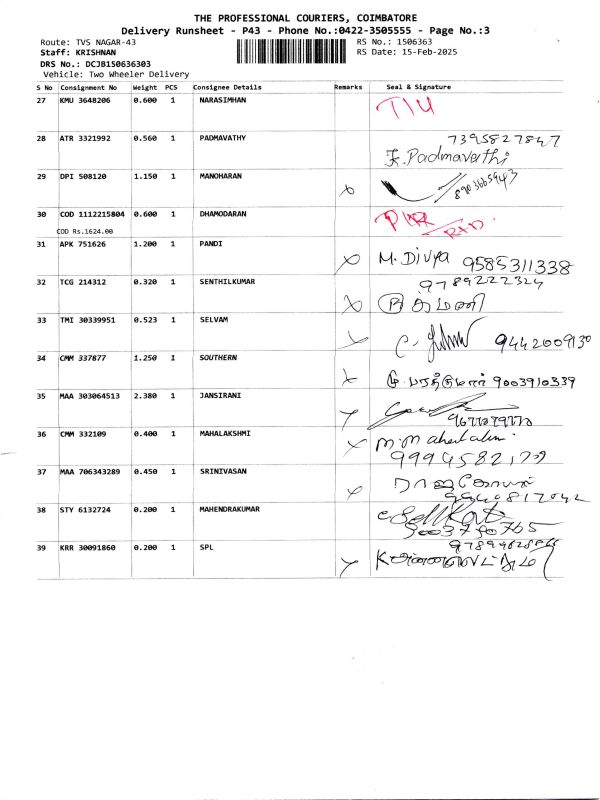 THE PROFESSIONAL COURIERS, COIMBATORE
Delivery Runsheet - P43 - Phone No.:0422-3505555 - Page No.:3
Route: TVS NAGAR-43 RS No.: 1506363
Staff: KRISHNAN RS Date: 15-Feb-2025
DRS No.: DCJB150636303
Vehicle: Two Wheeler Delivery
S No Consignment No Weight PCS Consignee Details Remarks Seal & Signature
27 KMU 3648206 0.600 1 NARASIMHAN
28 ATR 3321992 0.560 1 PADMAVATHY 7395827847
F. Padmavathi
29 DPI 508120 1.150 1 MANOHARAN 8903665943
30 COD 1112215804 0.600 1 DHAMODARAN
COD Rs.1624.00
31 APK 751626 1.200 1 PANDI M. Divya 9585311338
32 TCG 214312 0.320 1 SENTHILKUMAR 9789222324
33 TMI 30339951 0.523 1 SELVAM 9442009130
34 CMM 337877 1.250 1 SOUTHERN 9003910339
35 MAA 303064513 2.380 1 JANSIRANI
36 CMM 332109 0.400 1 MAHALAKSHMI
37 MAA 706343289 0.450 1 SRINIVASAN ராஜகோபால்
38 STY 6132724 0.200 1 MAHENDRAKUMAR
9003790765
39 KRR 30091860 0.200 1 SPL